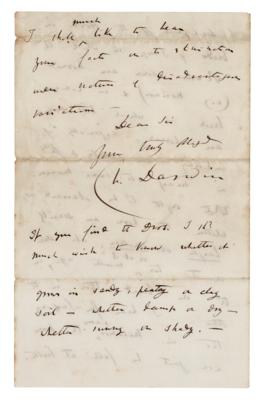 much
I shd like to hear
your facts on to
under nature of disadvantageous
variations —
Dear Sir
Yours truly obliged
Ch. Darwin
If you find the Dros. I shd
much wish to know whether it
grows in sandy, peaty or clay
soil — whether damp or dry —
whether sunny or shady. —